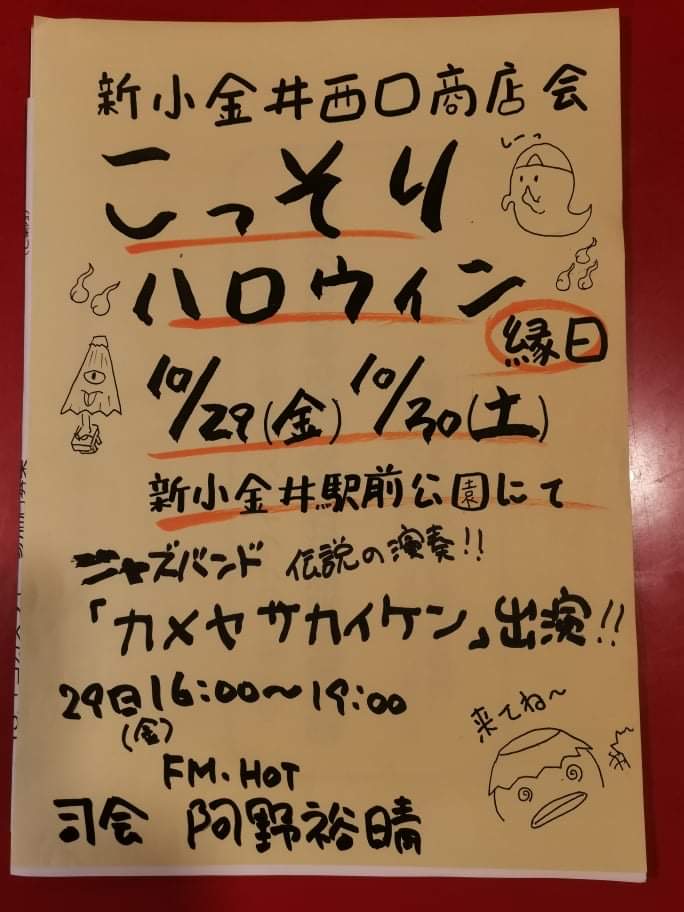 新小金井西口商店会
しーっ
こっそり
ハロウィン
縁日
10/29(金) 10/30(土)
新小金井駅前公園にて
ジャズバンド 伝説の演奏!!
「カメヤサカイケン」出演!!
29日16:00〜19:00
(金)
来てね〜
FM.HOT
司会 阿野裕晴